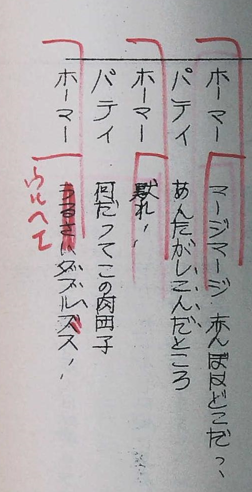 ホーマー マージマージ 赤んぼはどこだっ、
パティ あんたがしこんだところ
ホーマー 黙れ!
パティ 何だってこの肉団子
ホーマー うるさいダブルブス!
うるへェ